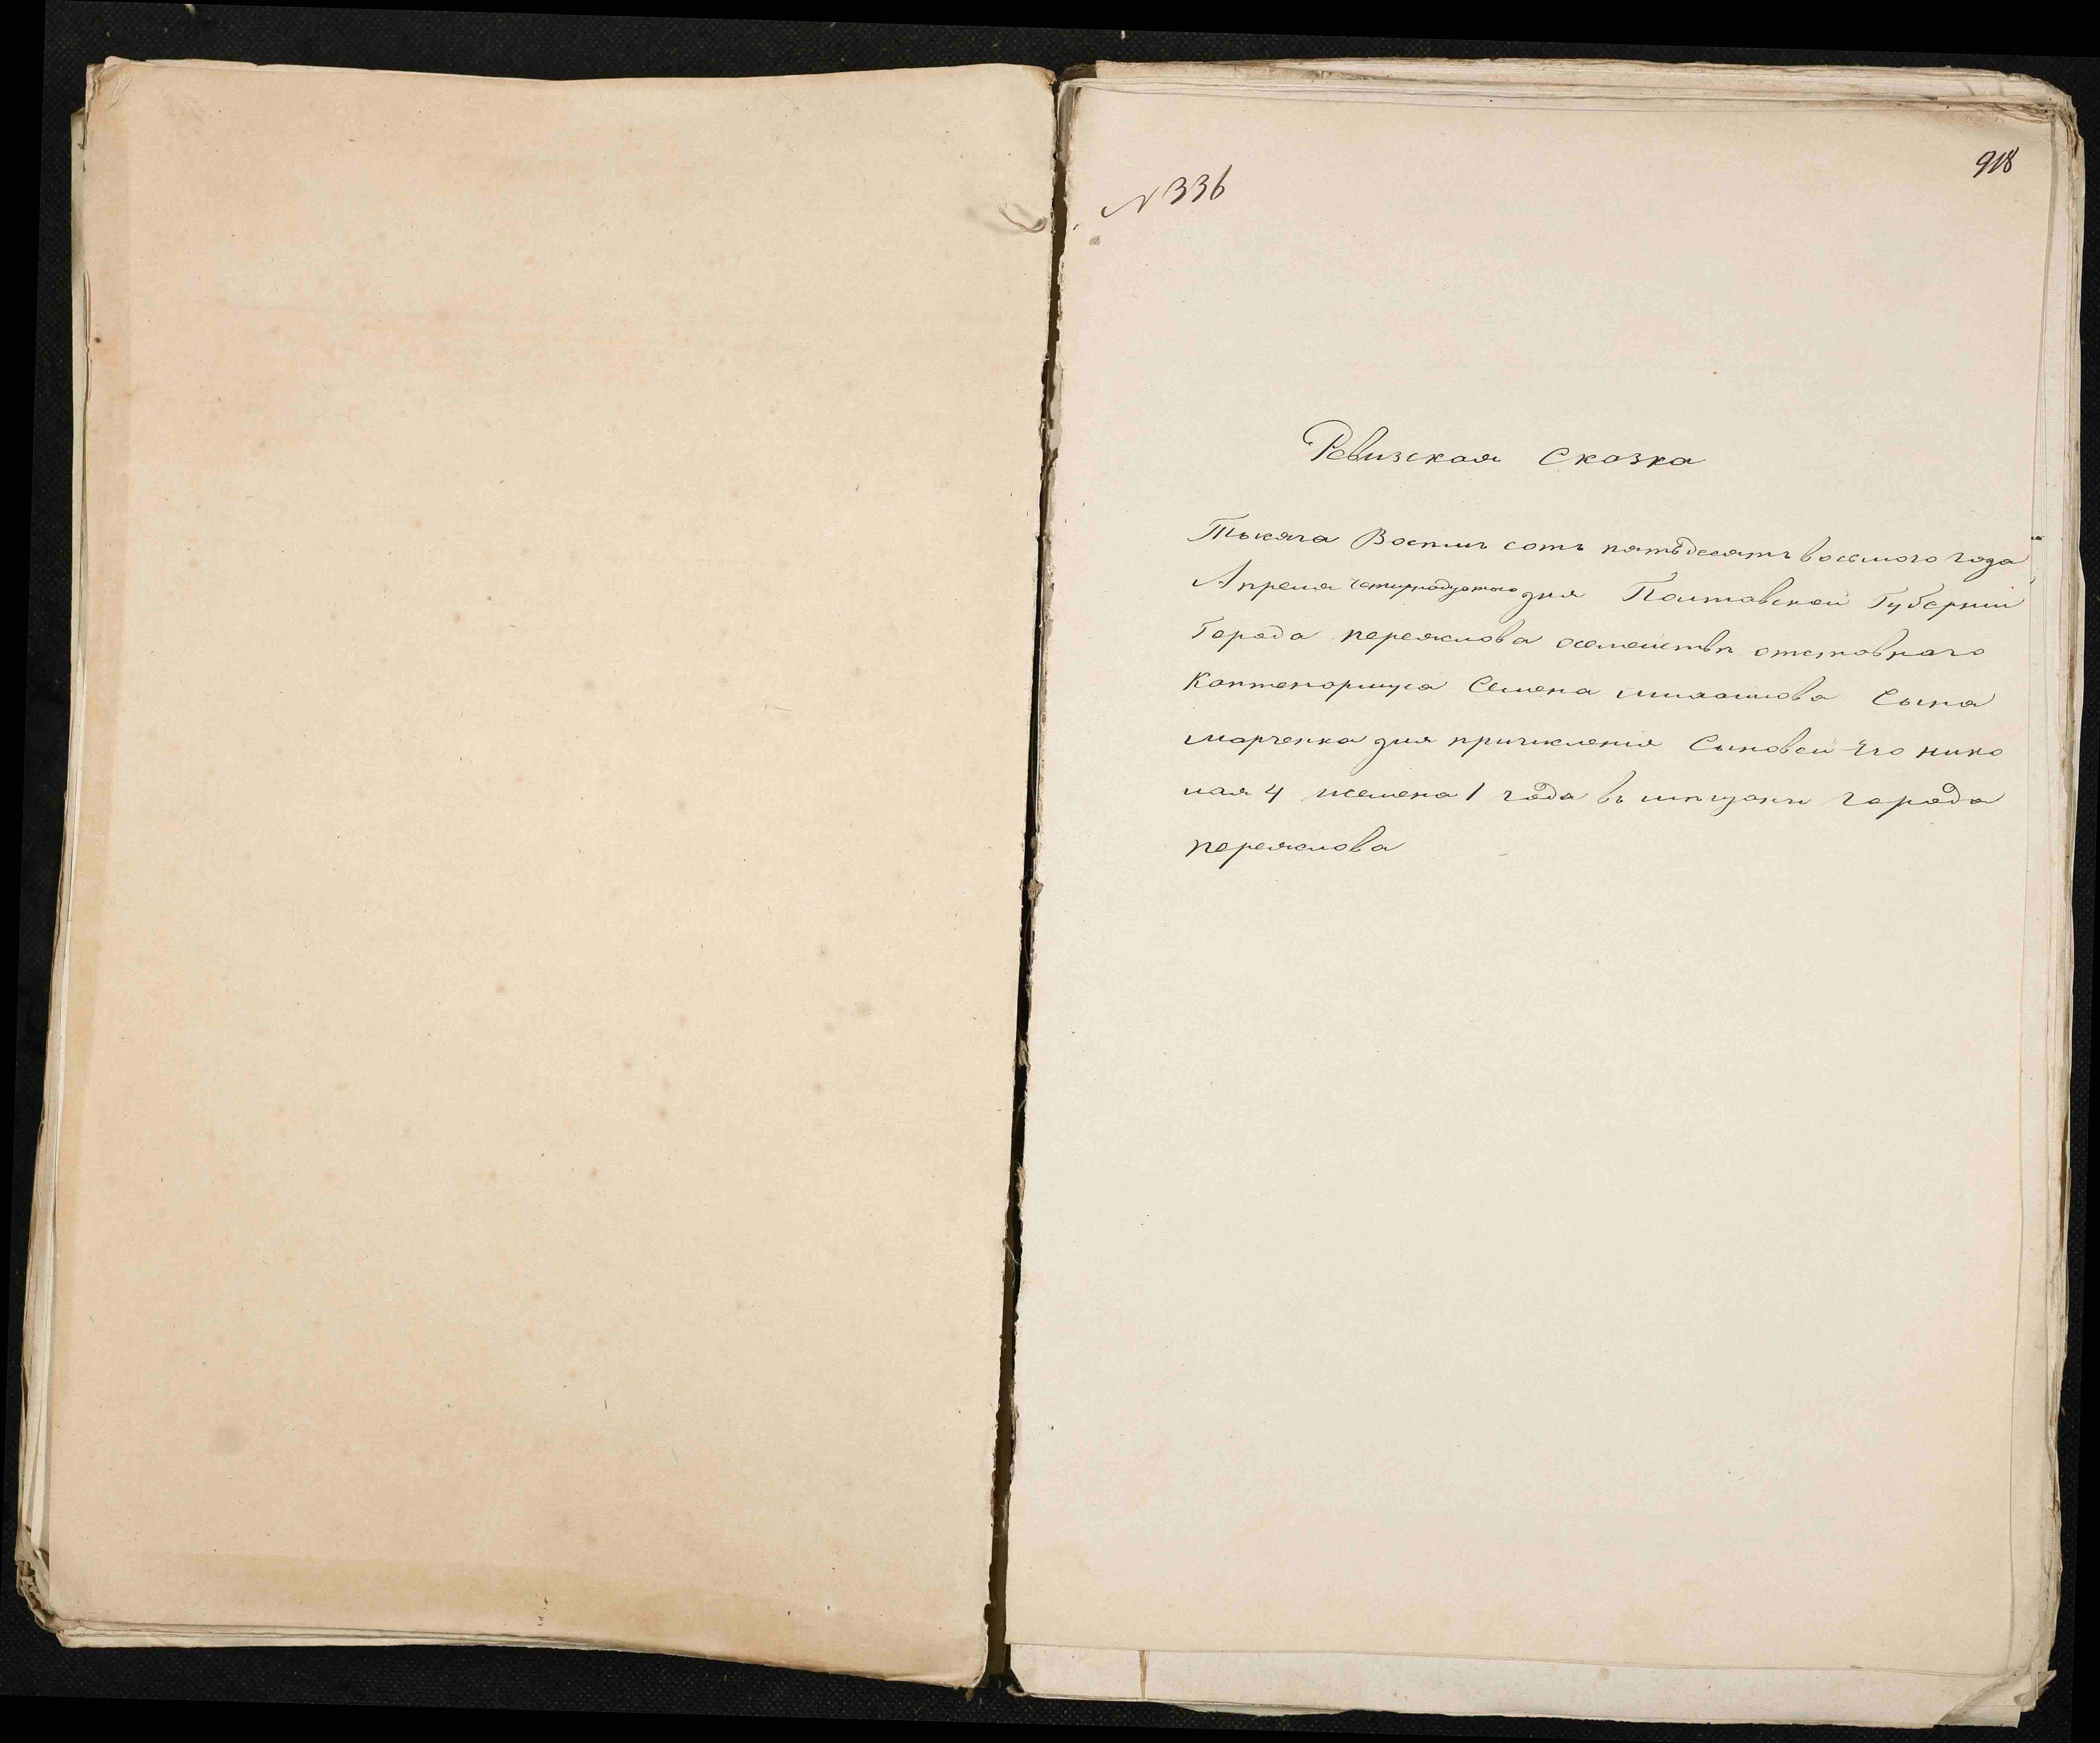 918
N 336
Ревизская сказка
Тысяча Восемь сотъ пятьдесятъ восьмого года
Апреля четирнадцатого дня Полтавской Губернии
Города переяслова осемействѣ отставнаго
Каптенармуса Семена михайлова Сына
марченка для причисления Сыновей Его нико
лая 4 исемена 1 года въ мѣщане города
переяслова